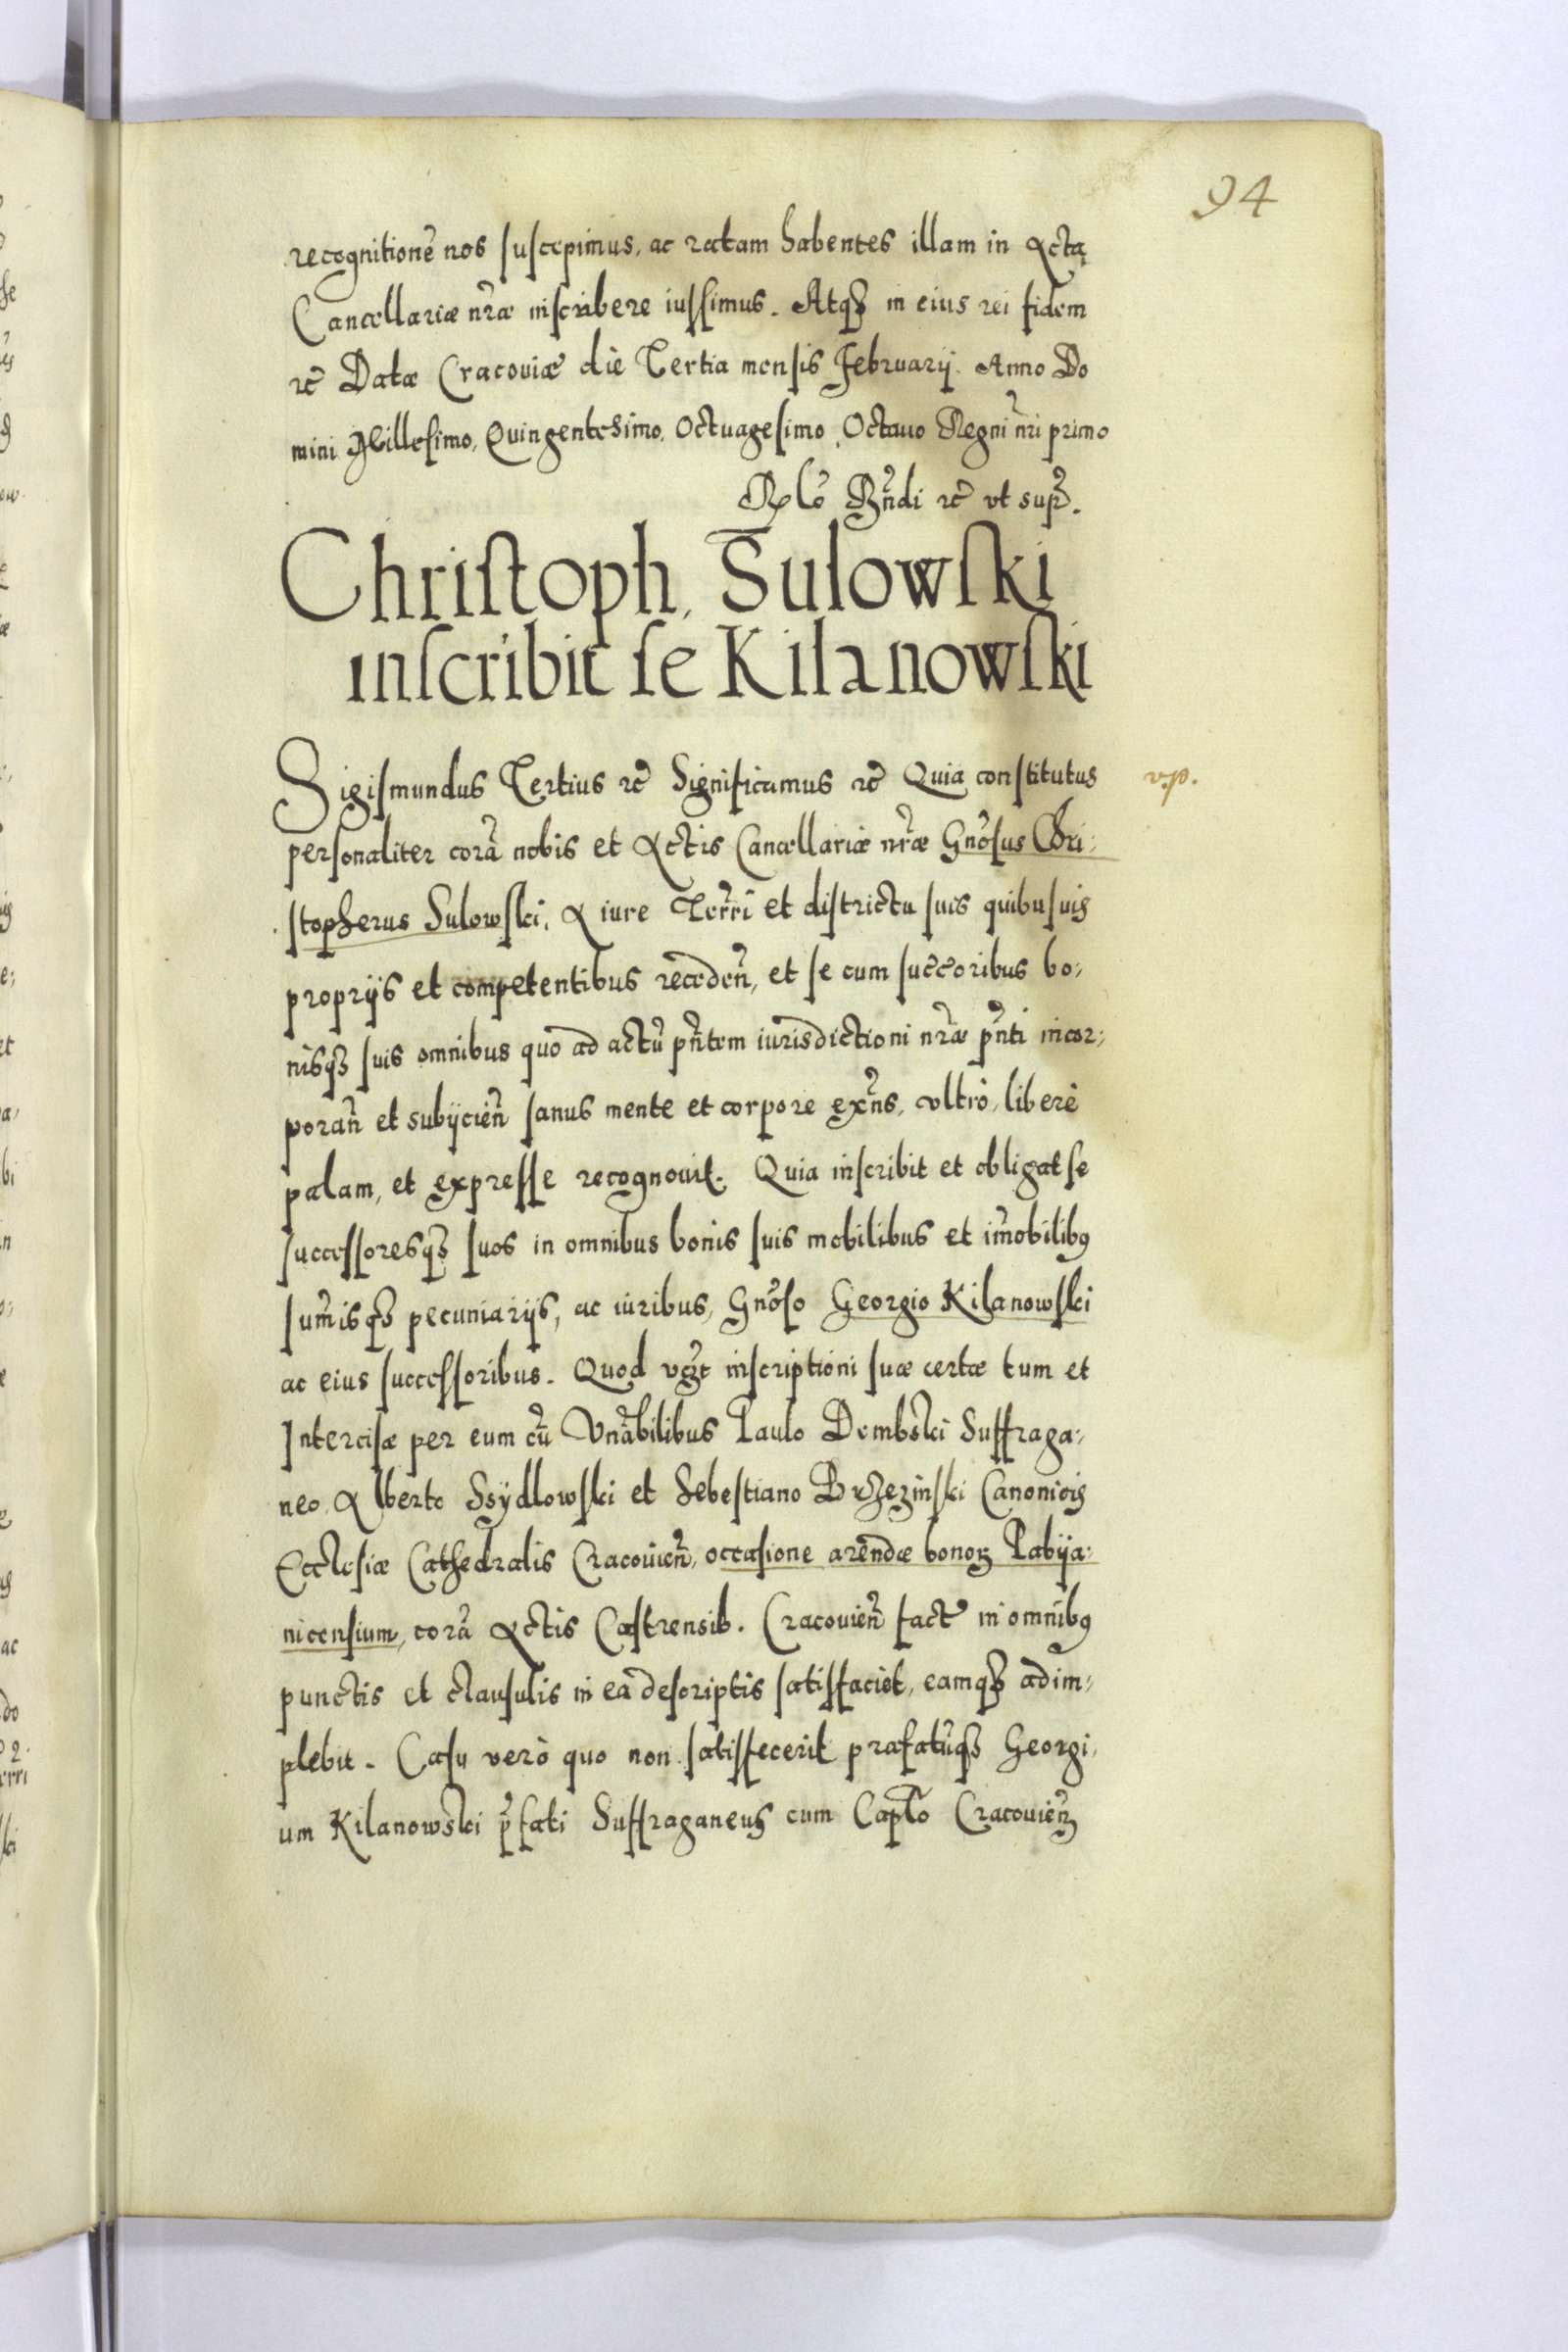 94
recognitionẽ nos suscepimus, ac ratam habentes illam in Acta
Cancellariæ nr̃æ inscribere iussimus. Atqꝫ in eius rei fidem
rc̃ Datæ Cracouiæ die Tertia mensis Februarij. Anno Do
mini Millesimo, Quingentesimo, Octuagesimo, Octauo Regni nr̃i primo
Rndi rc̃ vt supr̃.
Christoph, Sulowski
inscribit se Kilanowski
Sigismundus Tertius rc̃ Significamus rc̃ Quia constitutus
v.p.
personaliter corã nobis et Actis Cancellariæ nr̃æ Gnõsus Chri:
stopherus Sulowski, A iure Terr̃i et districtu suis quibusuis
proprijs et competentibus recedeñ, et se cum succ̃oribus bo,
nisqꝫ suis omnibus quo ad actũ pñtem iurisdictioni nr̃æ pñti incor,
porañ et subijcieñ sanus mente et corpore exñs, vltrò, liberè
palam, et expresse recognouit. Quia inscribit et obligat se
successoresqꝫ suos in omnibus bonis suis mobilibus et im̃obilibꝯ
sum̃isqꝫ pecuniarijs, ac iuribus, Gnõso Georgio Kilanowski
ac eius successoribus. Quod inscriptioni suæ certæ tum et
Intercisæ per eum cũ Vnãbilibus Paulo Dembski Suffraga,
neo, Alberto Ssÿdlowski et Sebestiano Brzezinski Canonicis
Ecclesiæ Cathedralis Cracouieñ, occasione arendæ bonoꝝ Pabija:
nicensium, corã Actis Castrensib. Cracouieñ fact̃ in omnibꝯ
punctis et clausulis in eã descriptis satisfaciet, eamqꝫ adim,
plebit. Casu verò quo non satisfecerit præfatũqꝫ Georgi,
um Kilanowski p̃fati Suffraganeus cum Captlo Cracouieñ